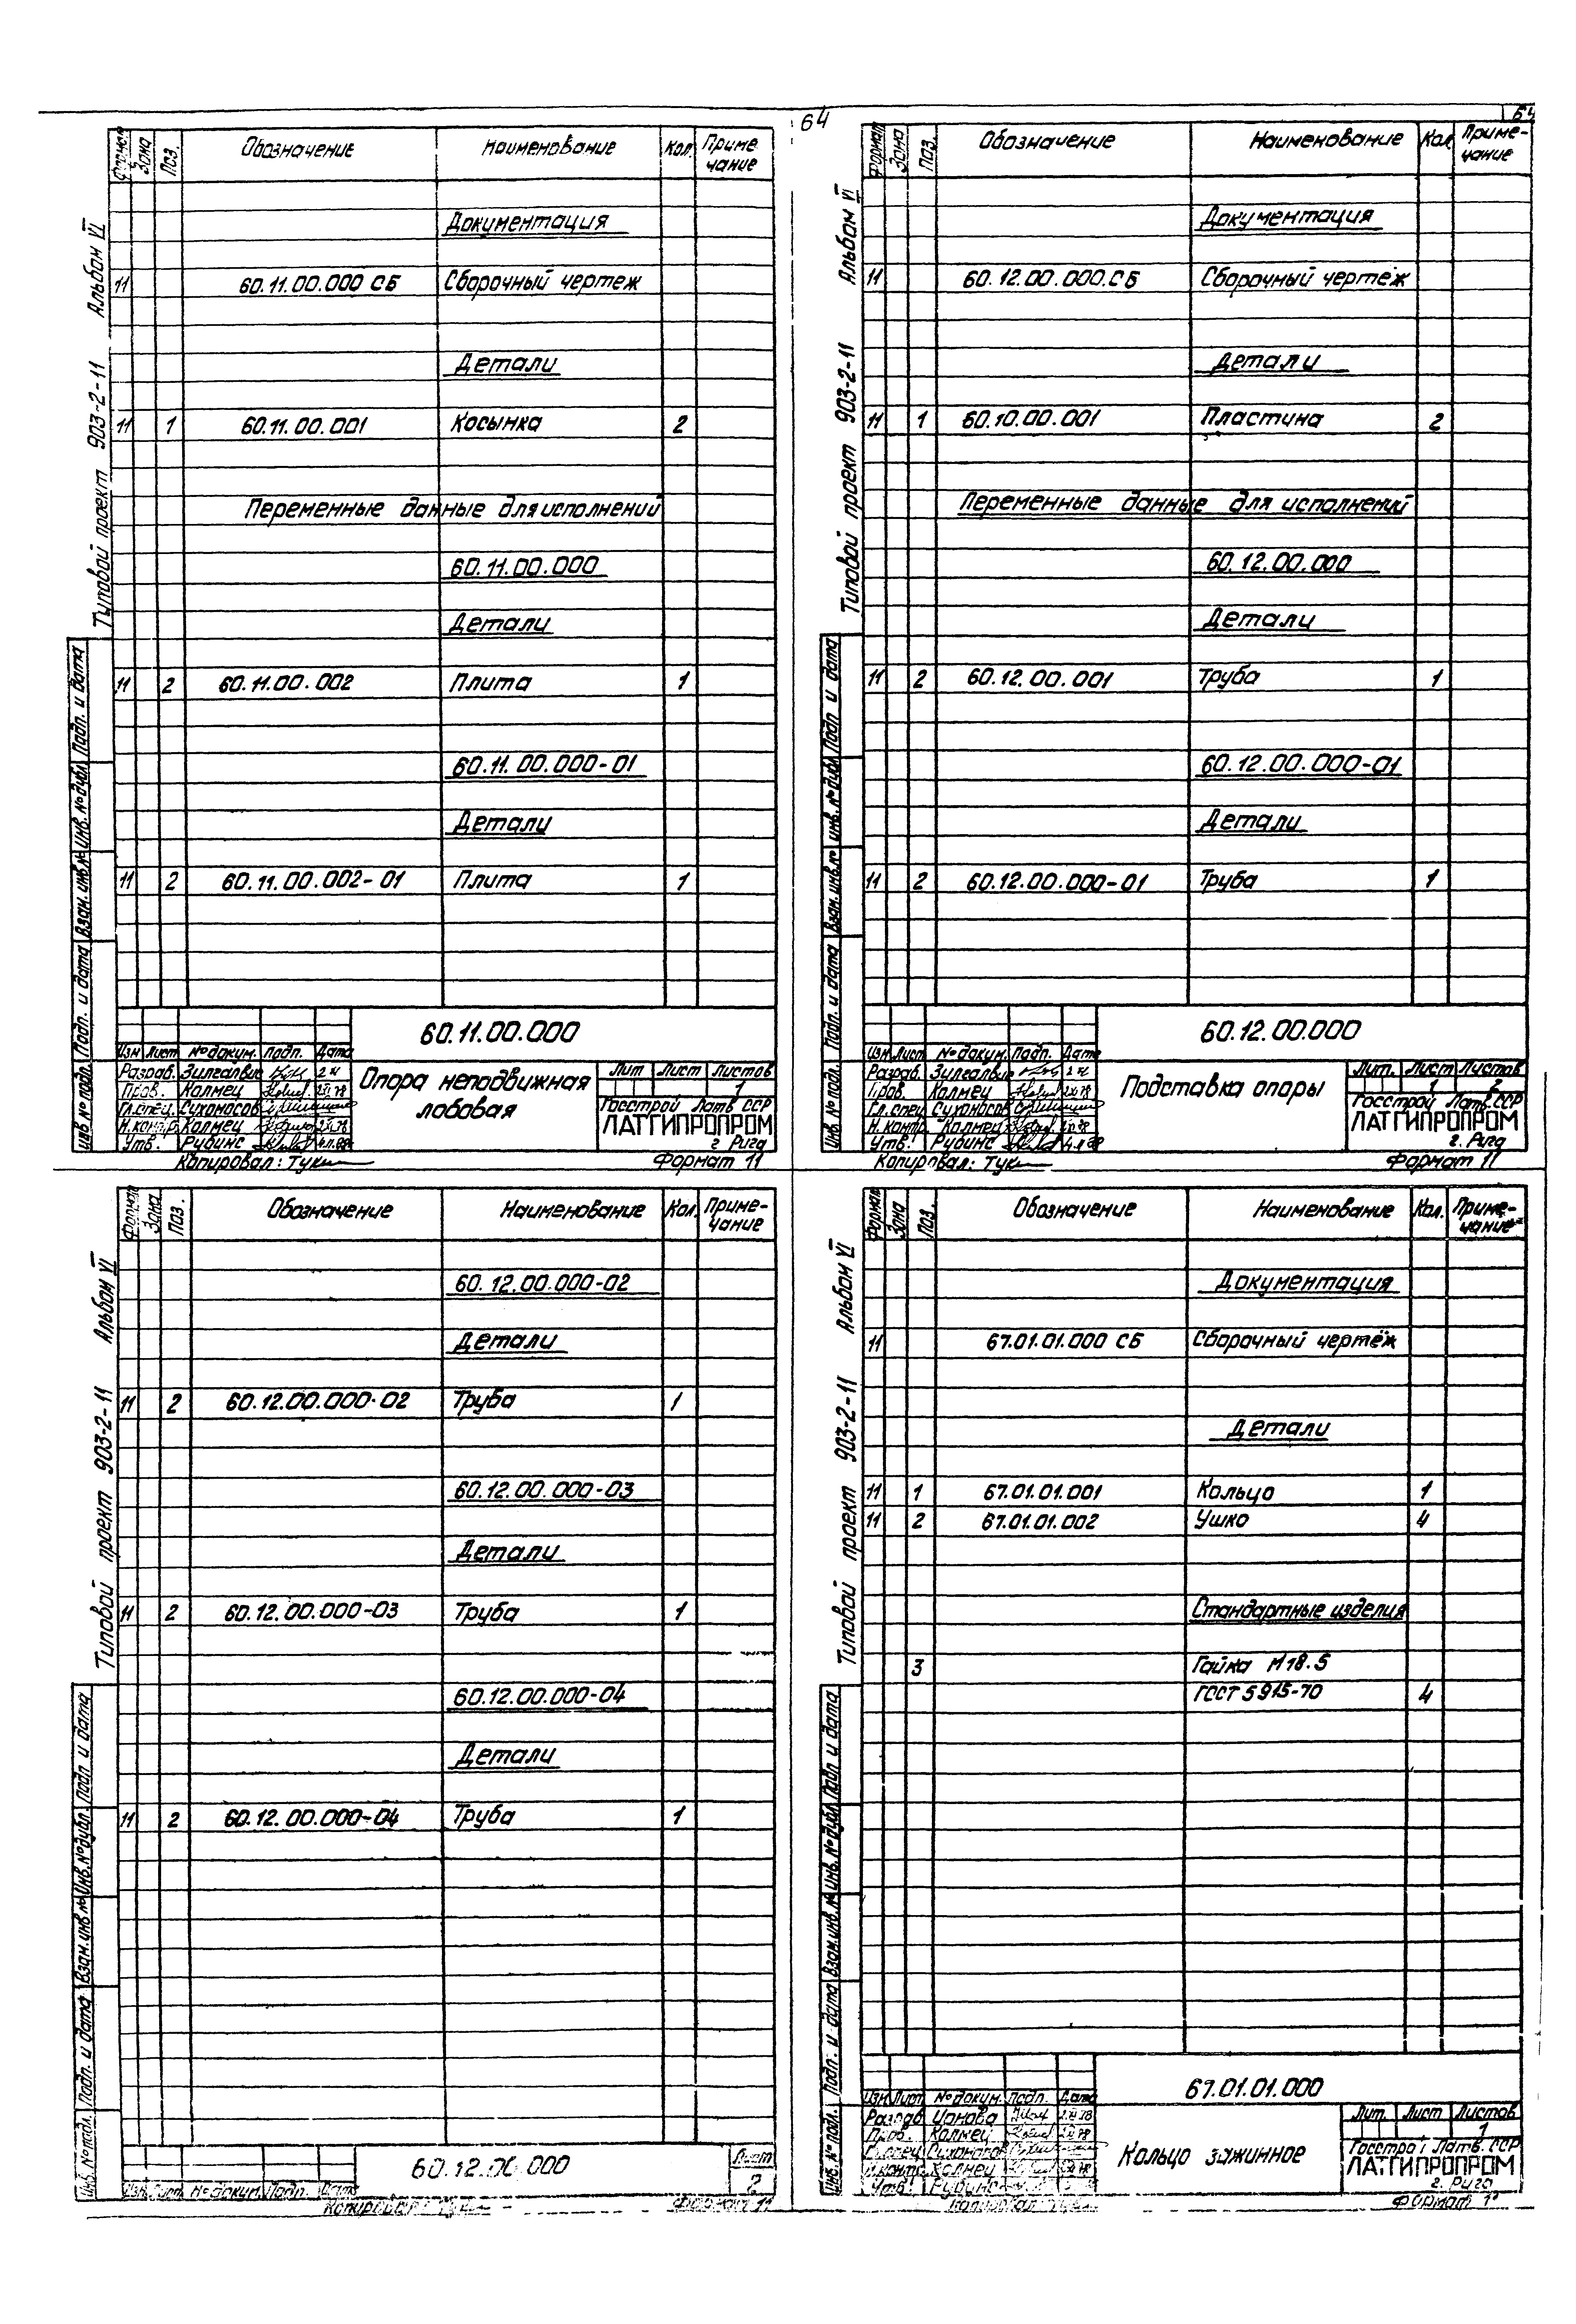 64
64
Типовой проект 903-2-11 Альбом VI
Формат Зона Поз. Обозначение Наименование Кол. Приме
чание
Документация
11 60.11.00.000 СБ Сборочный чертеж
Детали
11 1 60.11.00.001 Косынка 2
Переменные данные для исполнений
60.11.00.000
Детали
11 2 60.11.00.002 Плита 1
60.11.00.000-01
Детали
11 2 60.11.00.002-01 Плита 1
Инв № подл. Подп. и дата Взам. инв № Инв. № дубл. Подп. и дата
60.11.00.000
Изм Лист № докум. Подп. Дата
Разраб.
Пров. Калмец
Гл. спец. Сухоносов
Н. контр. Калмец
Утв. Рубинс
Опора неподвижная
лобовая
Лит Лист Листов
1
Госстрой Латв ССР
ЛАТГИПРОПРОМ
г Рига
Копировал: Формат 11
Типовой проект 903-2-11 Альбом VI
Формат Зона Поз. Обозначение Наименование Кол Приме-
чание
Документация
11 60.12.00.000.СБ Сборочный чертёж
Детали
11 1 60.10.00.001 Пластина 2
Переменные данные для исполнений
60.12.00.000
Детали
11 2 60.12.00.001 Труба 1
60.12.00.000-01
Детали
11 2 60.12.00.000-01 Труба 1
Инв. № подл. Подп. и дата Взам. инв. № Инв. № дубл Подп и дата
60.12.00.000
Изм Лист № докум. Подп. Дата
Разраб.
Пров. Калмец
Гл. спец Сухоносов
Н. контр. Калмец
Утв. Рубинс
Подставка опоры
Лит. Лист Листов
1 2
Госстрой Латв. ССР
ЛАТГИПРОПРОМ
г. Рига
Копировал: Формат 11
Типовой проект 903-2-11 Альбом VI
Формат Зона Поз. Обозначение Наименование Кол. Приме-
чание
60.12.00.000-02
Детали
11 2 60.12.00.000-02 Труба 1
60.12.00.000-03
Детали
11 2 60.12.00.000-03 Труба 1
60.12.00.000-04
Детали
11 2 60.12.00.000-04 Труба 1
Инв. № подл. Подп. и дата Взам. инв № Инв. № дубл. Подп и дата
60.12.00.000
Лист
2
Изм Лист № докум. Подп. Дата
Копировал Формат 11
Типовой проект 903-2-11 Альбом VI
Формат Зона Поз. Обозначение Наименование Кол. Приме-
чание
Документация
11 67.01.01.000 СБ Сборочный чертёж
Детали
11 1 67.01.01.001 Кольцо 1
11 2 67.01.01.002 Ушко 4
Стандартные изделия
3 Гайка М18.5
ГОСТ 5915-70 4
Инв. № подл. Подп. и дата Взам. инв. № Инв. № дубл Подп и дата
67.01.01.000
Изм Лист № докум. Подп. Дата
Разраб
Пров. Калмец
Гл. спец Сухоносов
Н. контр Калмец
Утв. Рубинс
Кольцо зажимное
Лит. Лист Листов
1
Госстрой Латв. ССР
ЛАТГИПРОПРОМ
г. Рига
Копировал Формат 11